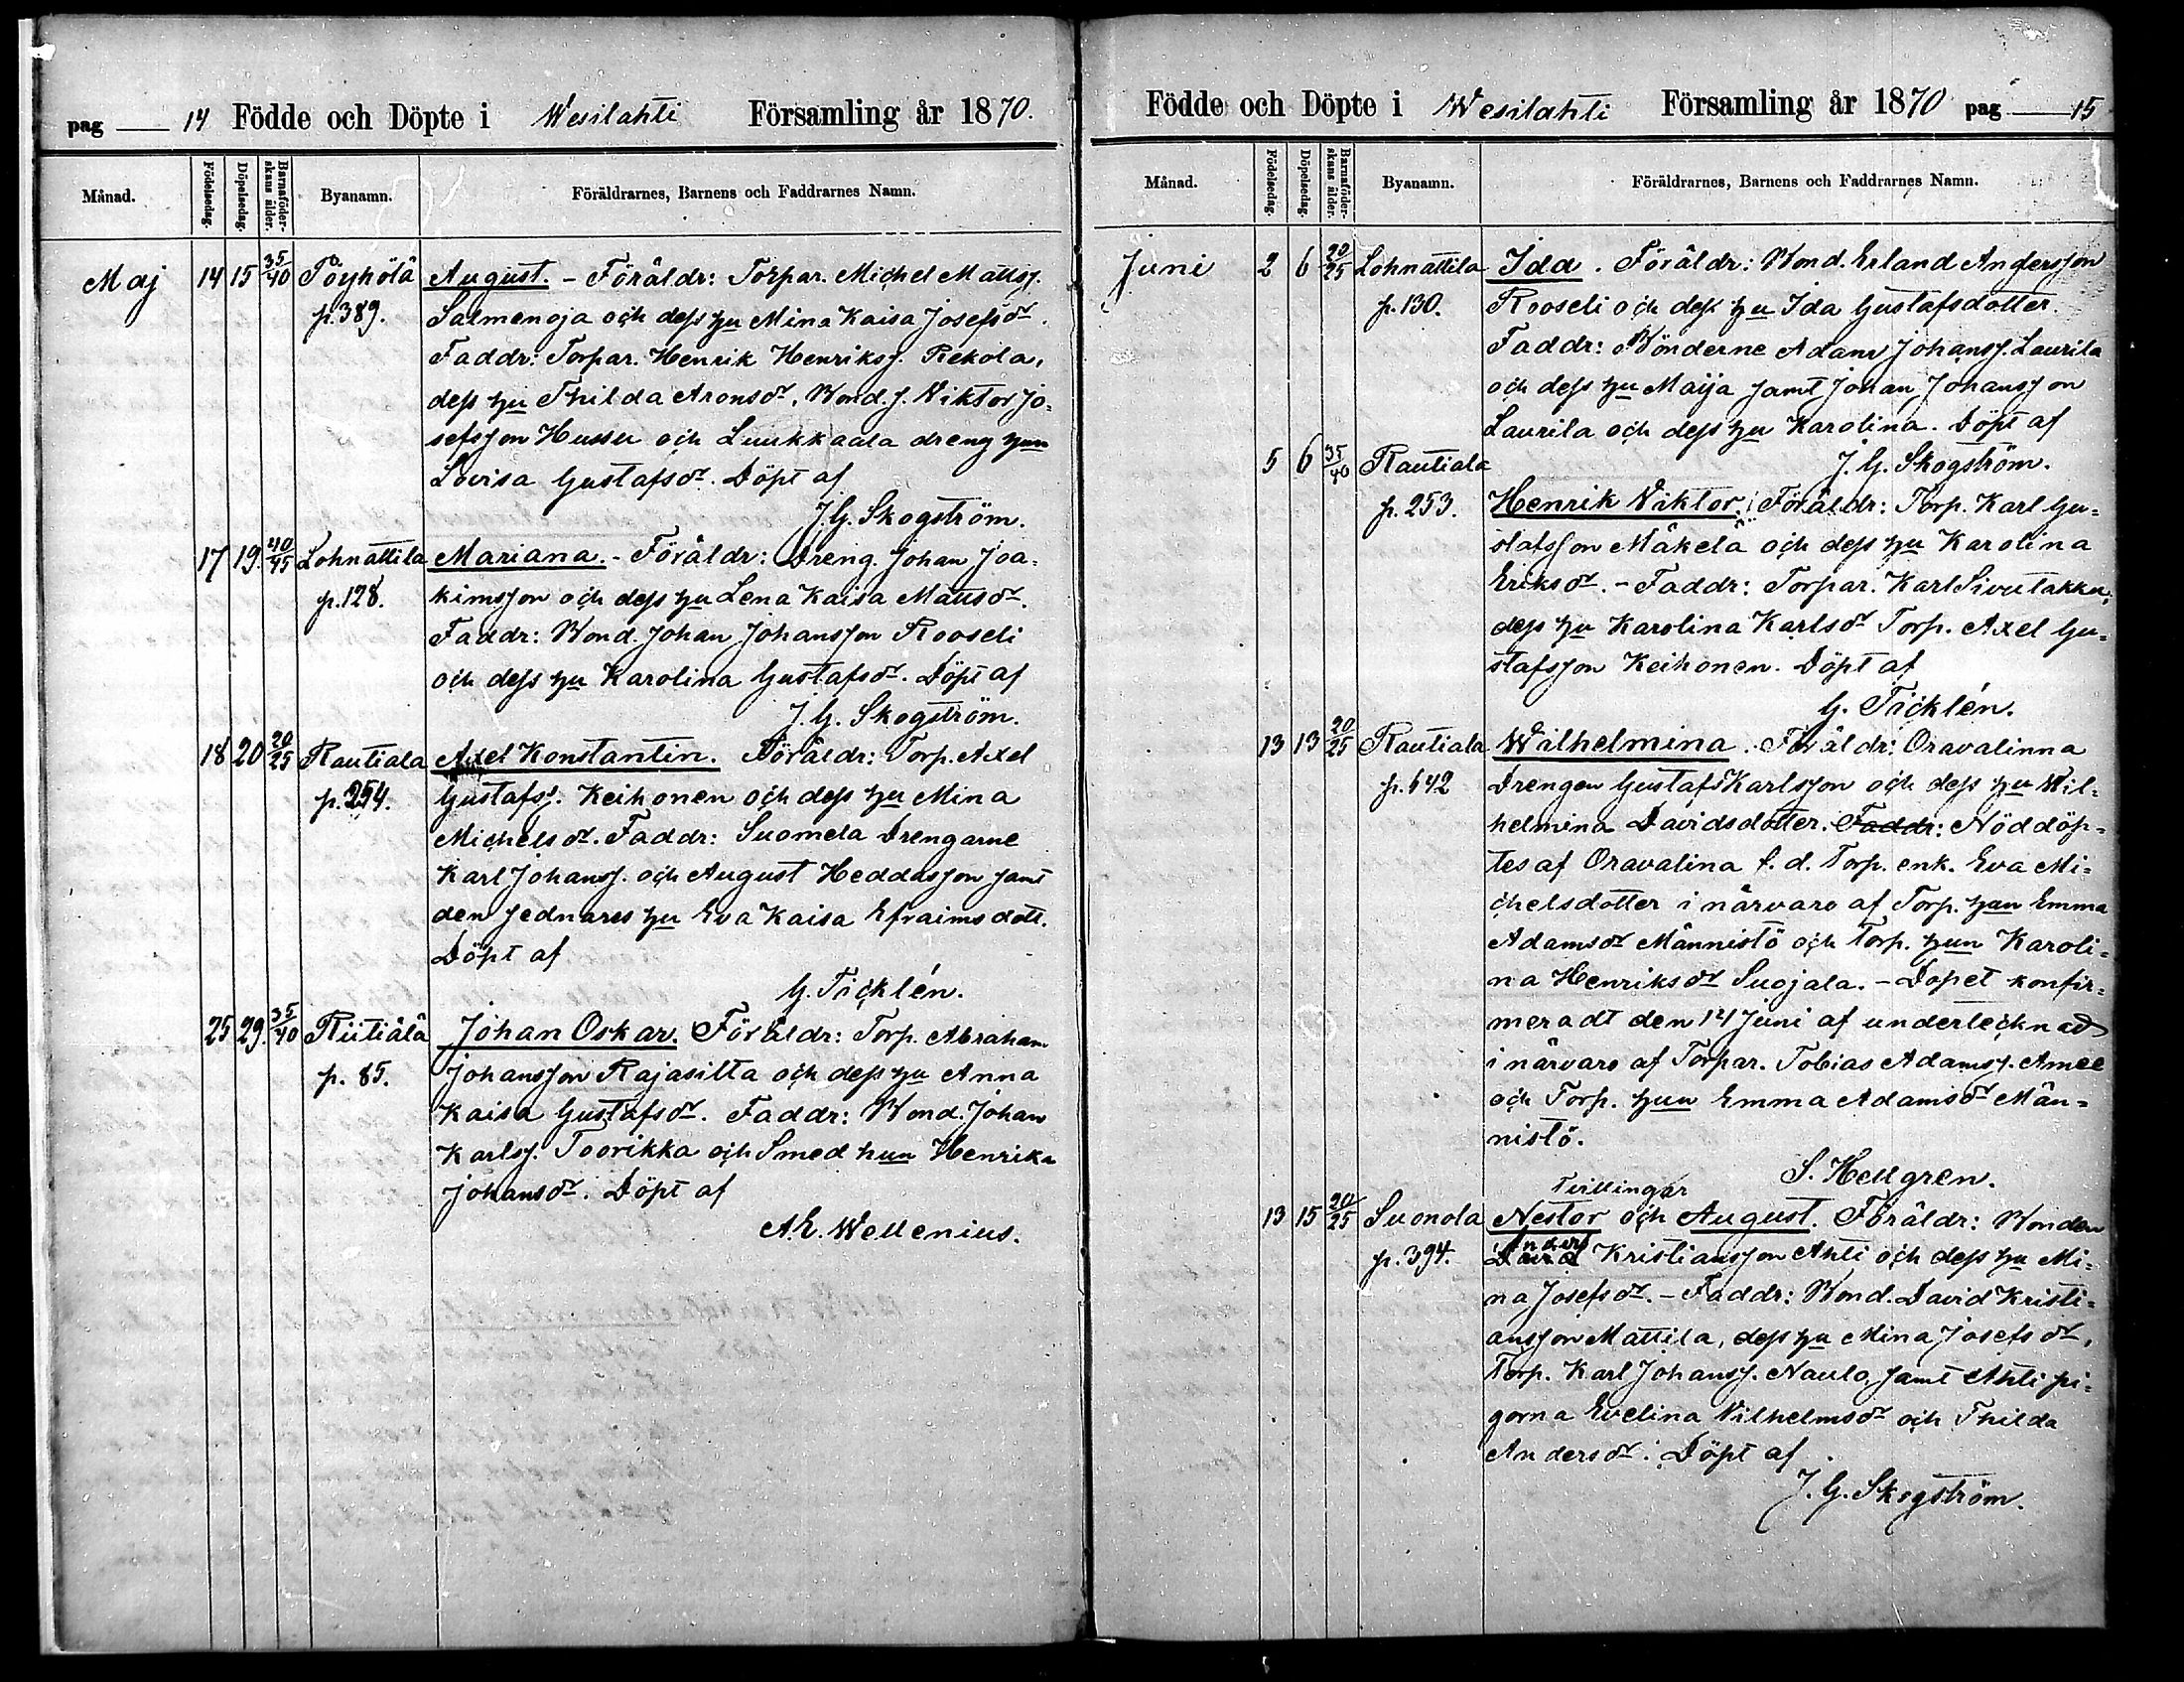 pag 14 Födde och Döpte i Wesilahti Församling år 1870.
Månad. Födelsedag. Döpelsedag. Barnaföder-skans ålder. Byanamn. Föräldrarnes, Barnens och Faddrarnes Namn.
Maj 14 15 35/40 Pöyhölä August. - Föräldr: Torpar. Michel Mattss.
p. 389. Salmenoja och dess hu Mina Kaisa Josefsdr.
Faddr: Torpar. Henrik Henrikss. Rekola,
dess hu Thilda Aronsdr, Bond. s. Viktor Jo-
sefsson Hussu och Luukkaala dreng hun
Lovisa Gustafsdr. Döpt af
J. G. Skogström.
17 19. 40/45 Lohnattila Mariana. - Föräldr: Dreng. Johan Joa-
p. 128. kimsson och dess hu Lena Kaisa Mattsdr.
Faddr: Bond. Johan Johansson Rooseli
och dess hu Karolina Gustafsdr. Döpt af
J. G. Skogström.
18 20 20/25 Rautiala Axel Konstantin. Föräldr: Torp. Axel
p. 254. Gustafss. Keihonen och dess hu Mina
Michelsdr. Faddr: Suomela Drengarne
Karl Johanss. och August Heddasson samt
den sednares hu Eva Kaisa Efraimsdott.
Döpt af
G. Täcklén.
25 29. 35/40 Riitiälä Johan Oskar. Föräldr: Torp. Abraham
p. 85. Johansson Rajasilta och dess hu Anna
Kaisa Gustafsdr. Faddr: Bond. Johan
Karlss. Toorikka och Smed hun Henrika
Johansdr. Döpt af
A. E. Wellenius.
Födde och Döpte i Wesilahti Församling år 1870 pag 15
Månad. Födelsedag. Döpelsedag. Barnaföder-skans ålder. Byanamn. Föräldrarnes, Barnens och Faddrarnes Namn.
Juni 2 6 20/25 Lohnattila Ida. Föräldr: Bond. Erland Andersson
p. 130. Rooseli och dess hu Ida Gustafsdotter.
Faddr: Bönderne Adam Johanss. Laurila
och dess hu Maija samt Johan Johansson
Laurila och dess hu Karolina. Döpt af
J. G. Skogström.
5 6 35/40 Rautiala
p. 253. Henrik Viktor. Föräldr: Torp. Karl Gu-
stafsson Mäkelä och dess hu Karolina
Eriksdr. - Faddr: Torpar. Karl Sivutakku,
dess hu Karolina Karlsdr Torp. Axel Gu-
stafsson Keihonen. Döpt af
G. Täcklén.
13 13 20/25 Rautiala Wilhelmina. Föräldr: Oravalinna
p. 642 Drengen Gustaf Karlsson och dess hu Wil-
helmina Davidsdotter. Faddr: Nöddöp-
tes af Oravalina f. d. Torp. enk. Eva Mi-
chelsdotter i närvaro af Torp. hun Emma
Adamsdr Männistö och Torp. hun Karoli-
na Henriksdr Suojala. - Dopet konfir-
meradt den 14 Juni af undertecknad
i närvaro af Torpar. Tobias Adamss. Amee
och Torp. hun Emma Adamsdr Män-
nistö.
S. Hellgren.
Tvillingar
13 15 20/25 Suonola Nestor och August. Föräldr: Bonden
Anders
p. 394. David Kristiansson Ahti och dess hu Mi-
na Josefsdr. - Faddr: Bond. David Kristi-
ansson Mattila, dess hu Mina Josefsdr,
Torp. Karl Johanss. Naulo, samt Ahti pi-
gorna Evelina Vilhelmsdr och Thilda
Andersdr. Döpt af
J. G. Skogström.